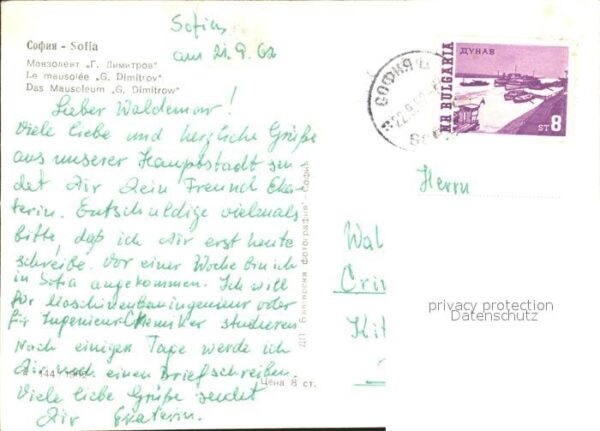 Sofia,
am 21.9.62
София - Sofia
Мавзолеят „Г. Димитров"
Le mausolée „G. Dimitrov"
Das Mausoleum „G. Dimitrow"
Lieber Waldemar!
Viele liebe und herzliche Grüße
aus unserer Hauptstadt sen
det Dir Dein Freund Eka-
terin. Entschuldige vielmals
bitte, daß ich Dir erst heute
schreibe. Vor einer Woche bin ich
in Sofia angekommen. Ich will
für Maschinenbauingenieur oder
für Ingenieur Chemiker studieren
Nach einigen Tage werde ich
Dir noch einen Brief schreiben.
Viele liebe Grüße sendet
Dir Ekaterin.
Цена 8 ст.
ДП „Българска фотография" - София
СОФИЯ
22.9.62
NR BULGARIA
ДУНАВ
ST 8
Herrn
Wal
Crim
Kit
privacy protection
Datenschutz